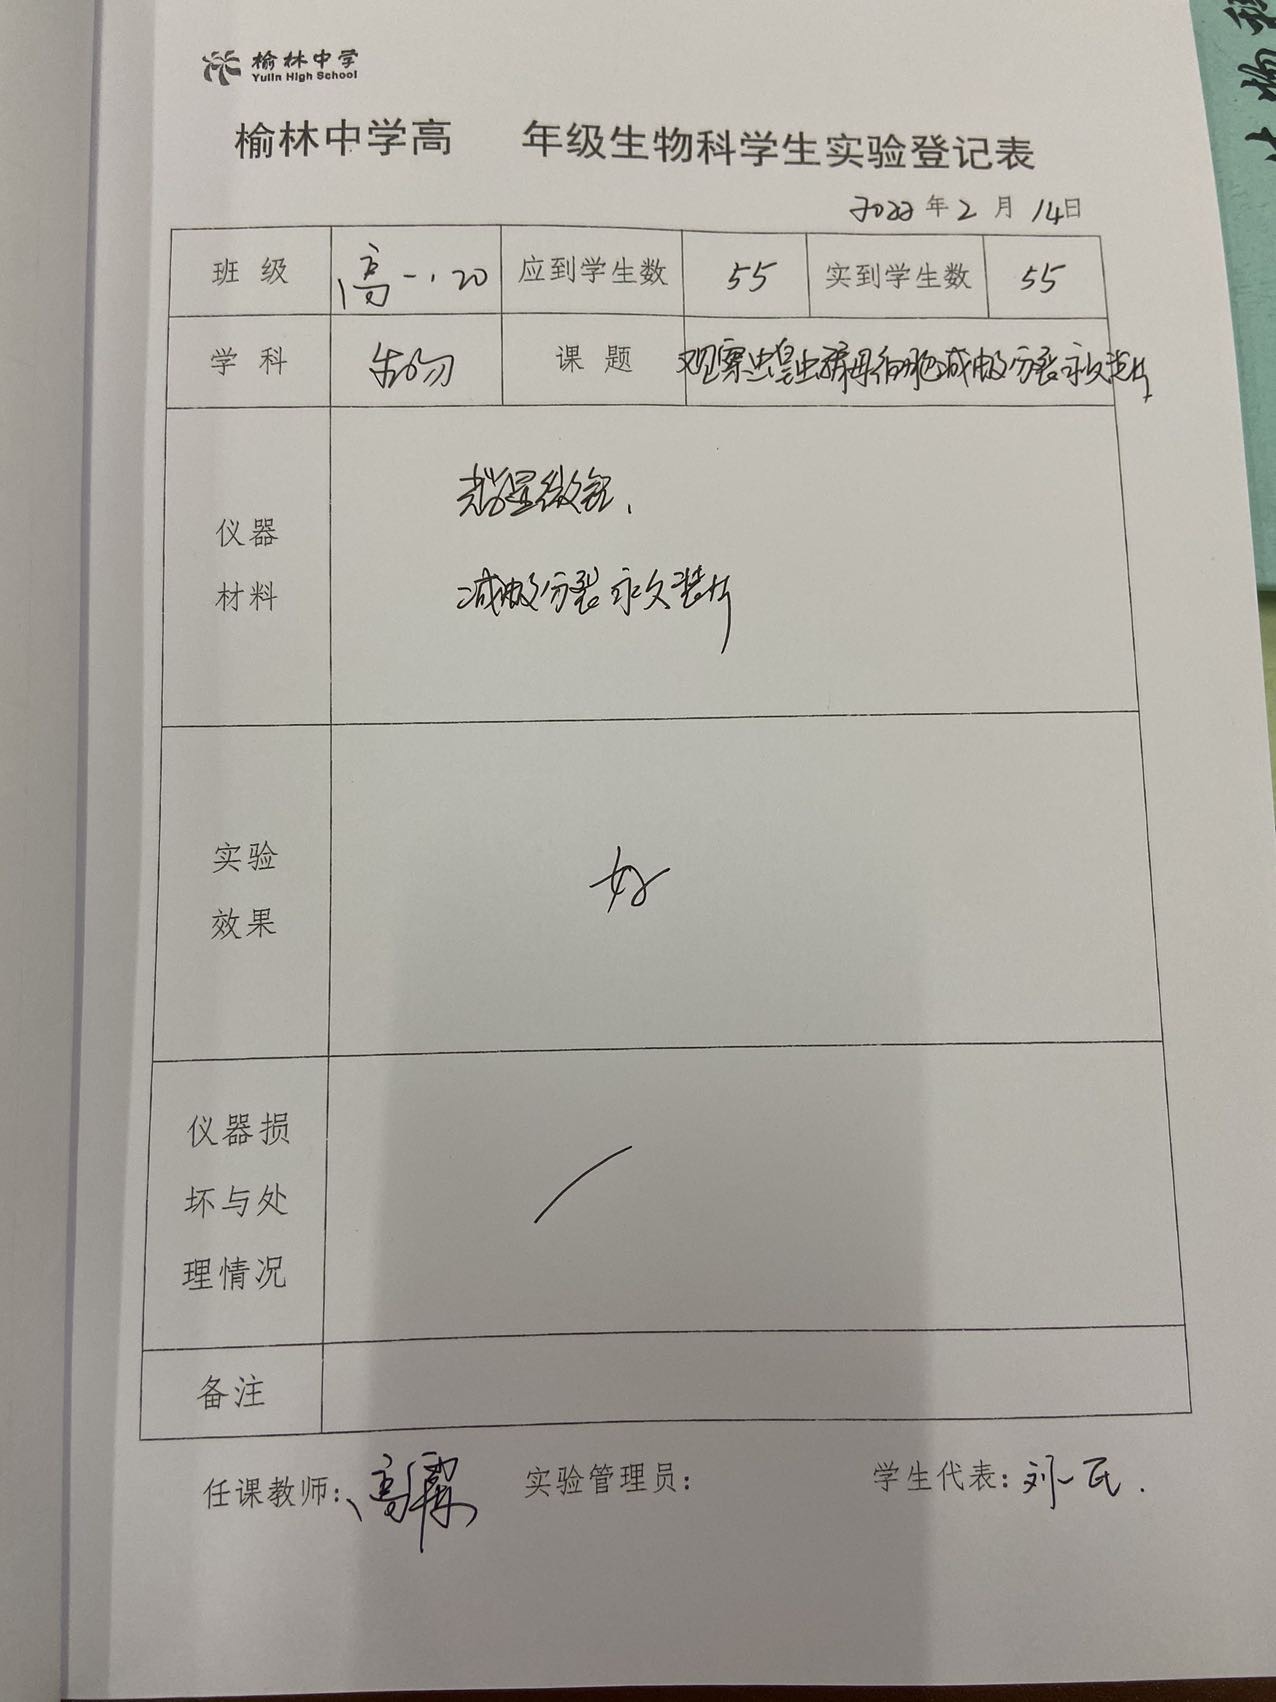 榆林中学
Yulin High School
榆林中学高 年级生物科学生实验登记表
2022年2月14日
班级 高一.20 应到学生数 55 实到学生数 55
学科 生物 课题 观察蝗虫精母细胞减数分裂永久装片
仪器
材料
光学显微镜、
减数分裂永久装片
实验
效果
好
仪器损
坏与处
理情况
备注
任课教师: 高霖 实验管理员: 学生代表: 刘一民.
生物